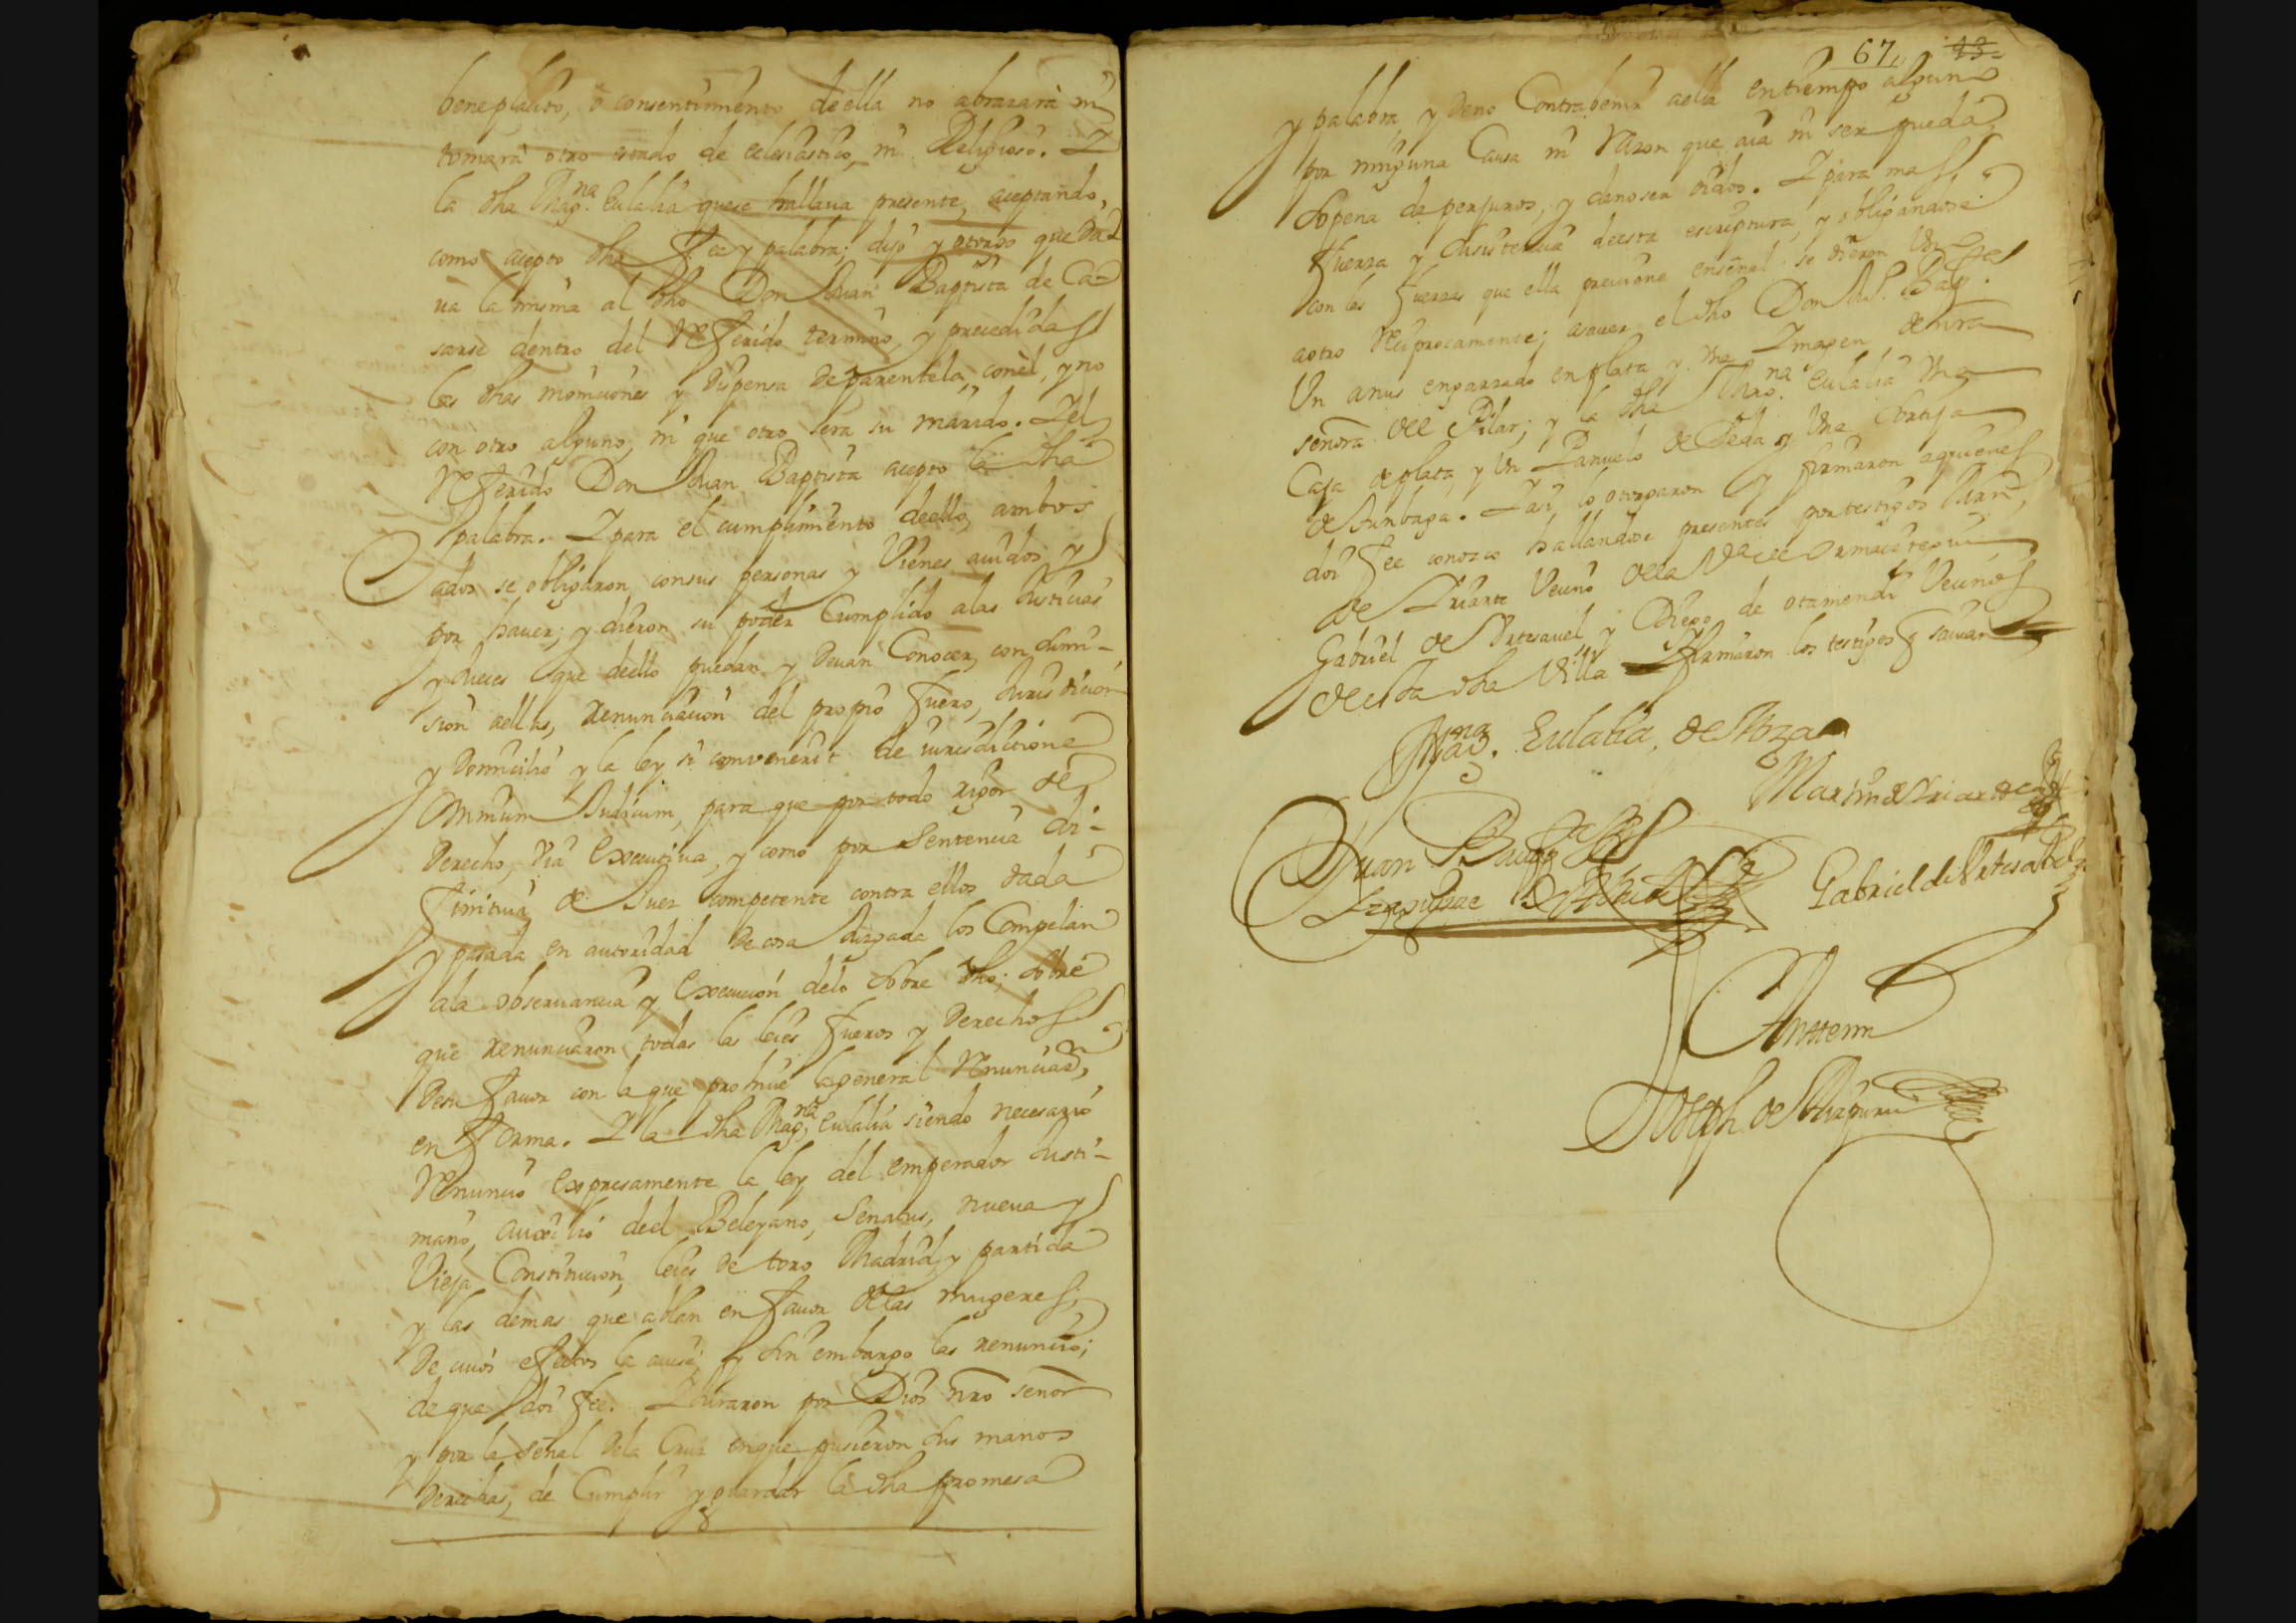 beneplasito, o consentimiento de ella no abrazará ni
tomará otro estado de eclesiastico, ni Religioso. Y
la dha Mag.na Eulalia quese hallaua presente, aceptando,
como acepto dha Fee y palabra; dijo y otorgo que da-
ua la misma al dho Don Juan Baptista de Ca-
sarse dentro del Referido termino, y precedidas
las dhas moniciones y dispensa de parentela, con èl, y no
con otro alguno, ni que otro sera su marido. Y el
Referido Don Juan Baptista acepto la dha
palabra. Y para el cumplimiento de ello, ambos
ados se obligaron consus personas y Vienes auidos y
por hauer; y dieron su poder Cumplido alas Justicias
y Jueces que dello puedan y deuan Conocer, con sumi-
sion aellas, renunciacion del propio fuero, Jurisdicion
y Domicilio y la ley si convenerit de iurisdictione
omnium Judicum, para que por todo rigor de
Derecho, via executiva, y como por Sentencia di-
finitiua de Juez competente contra ellos dada
y pasada en autoridad de cosa Juzgada los Compelan
ala observancia y execucion delo sobre dho; sobre
que renunciaron todas las leies fueros y Derechos
desu fauor con la que prohiue la general Renunciaon,
en forma. Y la dha Mag.na Eulalia siendo necesario
Renuncio expresamente la ley del emperador Justi-
niano, auxilio del Beleyano, Senatus, nueua y
Vieja Constitucion, leies de toro Madrid, y partida
y las demas que ablan en fauor delas mugeres,
de cuios efectos la auisé; y sin embargo las renuncio;
de que doi fee. Y Juraron por Dios nro señor
y por la señal dela Cruz enque pusieron sus manos
derechas, de Cumplir y guardar la dha promesa
67 43
y palabra, y deno Contrabenir aella entiempo alguno
por ninguna Causa ni Razon que aia ni ser pueda,
sopena de perjuros, y denoser oidos. Y para mas
fuerza y subsistencia deesta escriptura, y obligandose
con las fuerzas que ella precisione enseñal se dieron Vn
aotro Reciprocamente; asauer el dho Don Ju. Bap.
Vn anus engarzado en plata y Vna Imagen de nra
señora del Pilar; y la dha Mag.na Eulalia Vna
Caja de plata, y Vn Panuelo de Seda y Vna Sortija
de Tunbaga. Y asi lo otorgaron y firmaron aquienes
doi fee conozco hallandose presentes por testigos Marn,
de Iriarte Vecino dela Vª de Ormaiztegui,
Gabriel de Vrtesauel y Diego de otamendi Vecinos
de esta dha Villa Y firmaron los testigos q sauian
Mag.na Eulalia, de
Martin de Iriarte
Juan Bauptª
Gabriel de Vrtesabel
Antemi
Joseph de